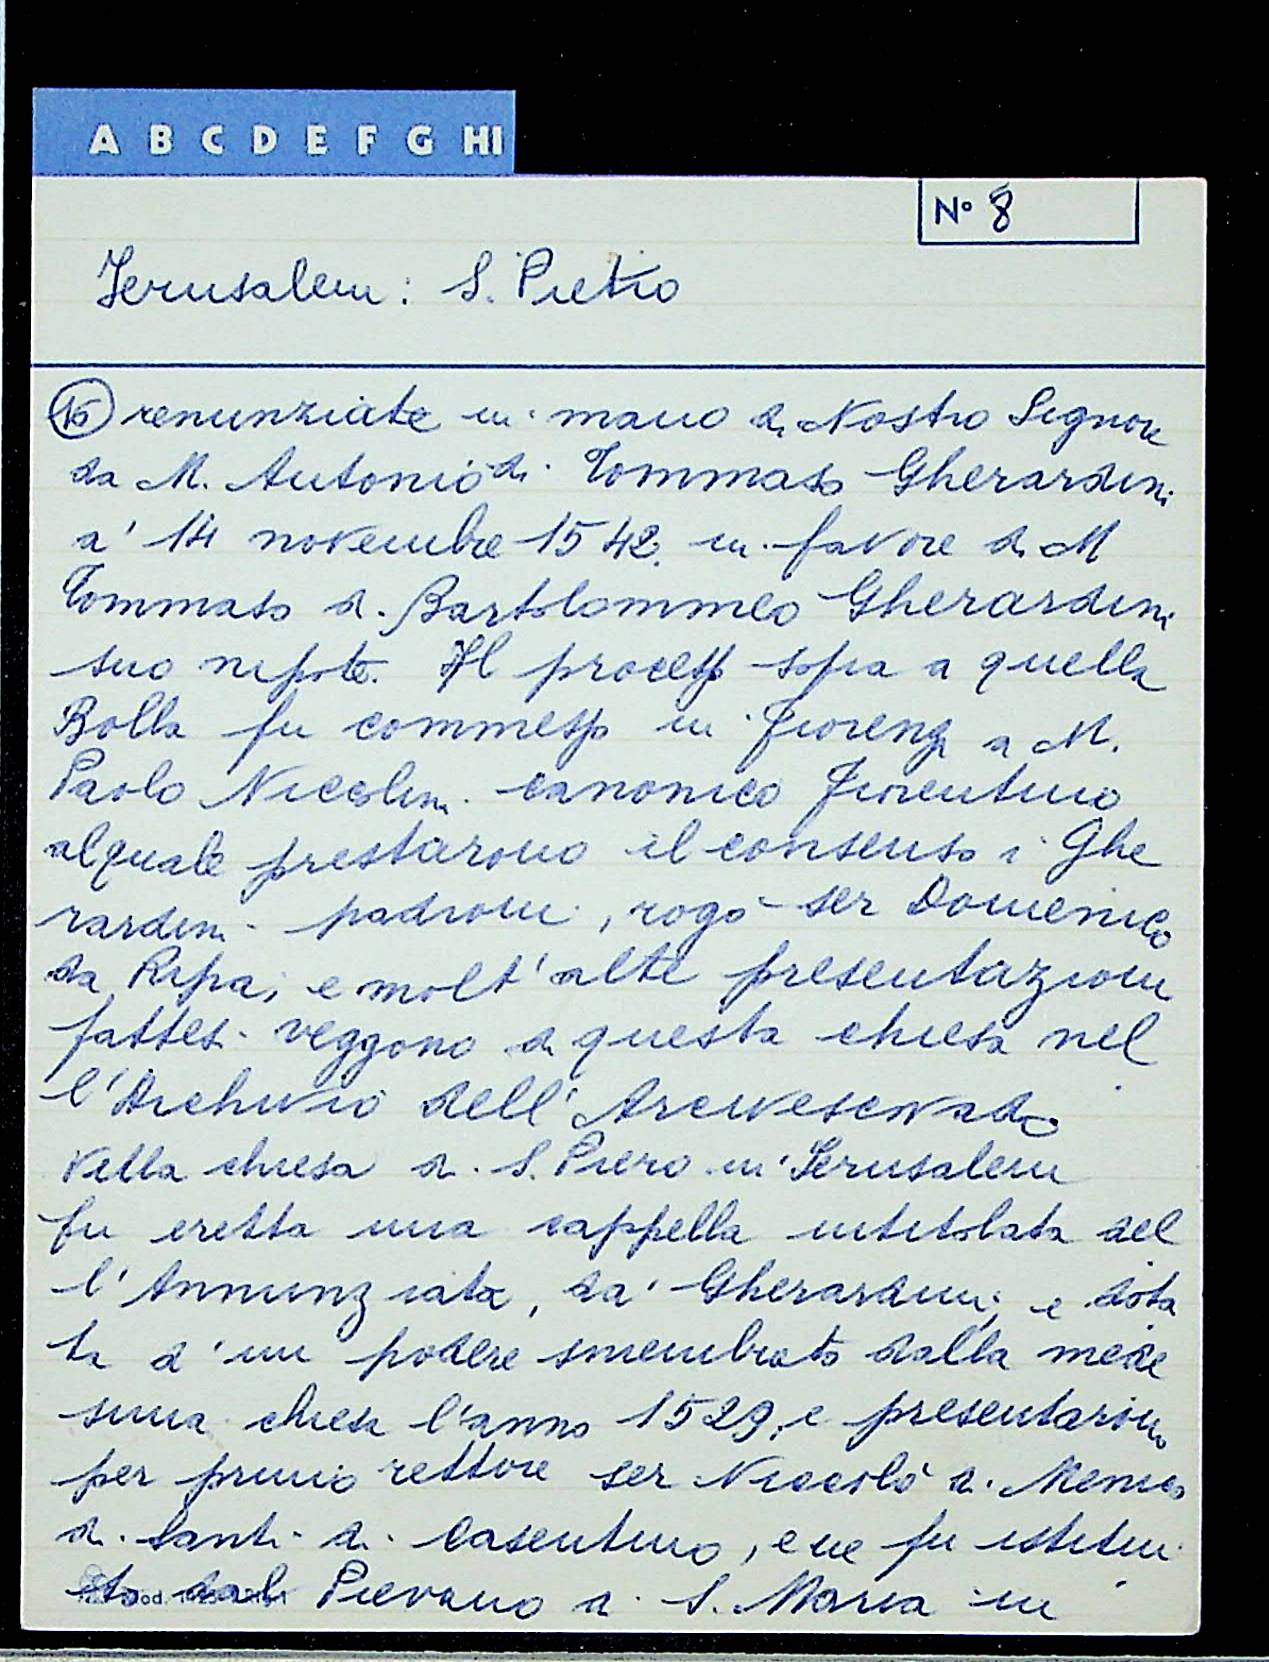 A B C D E F G HI
N° 8
Jerusalem: S. Pietro
15 renunziate in mano di Nostro Signore
da M. Antonio di Tommaso Gherardini
a' 14 novembre 1542. in favore di M
Tommaso di Bartolommeo Gherardini
suo nipote. Il processo sopra a quella
Bolla fu commesso in Fiorenza a M.
Paolo Niccolini canonico Fiorentino
al quale prestarono il consenso i Ghe
rardini padroni, rogò ser Domenico
da Ripa; e molt' alte presentazioni
fattesi veggono di questa chiesa nel
l'Archivio dell' Arcivescovado
Nella chiesa di S. Piero in Jerusalem
fu eretta una cappella intitolata del
l'Annunziata, da' Gherardini, e dota
ta d'un podere smembrato dalla mede
sima chiesa l'anno 1529, e presentarono
per primo rettore ser Niccolò di Menico
di Santi di Casentino, e ne fu istitui
to dal Pievano di S. Maria in